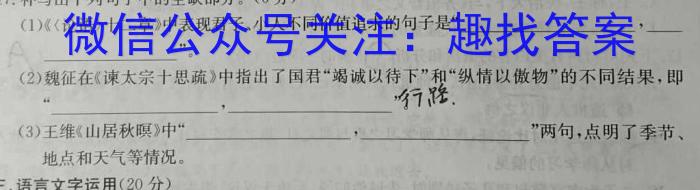 (1)《《论语》十二章》中表现君子、小人不同价值追求的句子是"
微信公众号关注:趣找答案
(2)魏征在《谏太宗十思疏》中指出了国君"竭诚以待下"和"纵情以傲物"的不同结果,即
"____________,____________"行路.
(3)王维《山居秋暝》中"____________,____________"两句,点明了季节、
地点和天气等情况。
语言文字运用(20分)